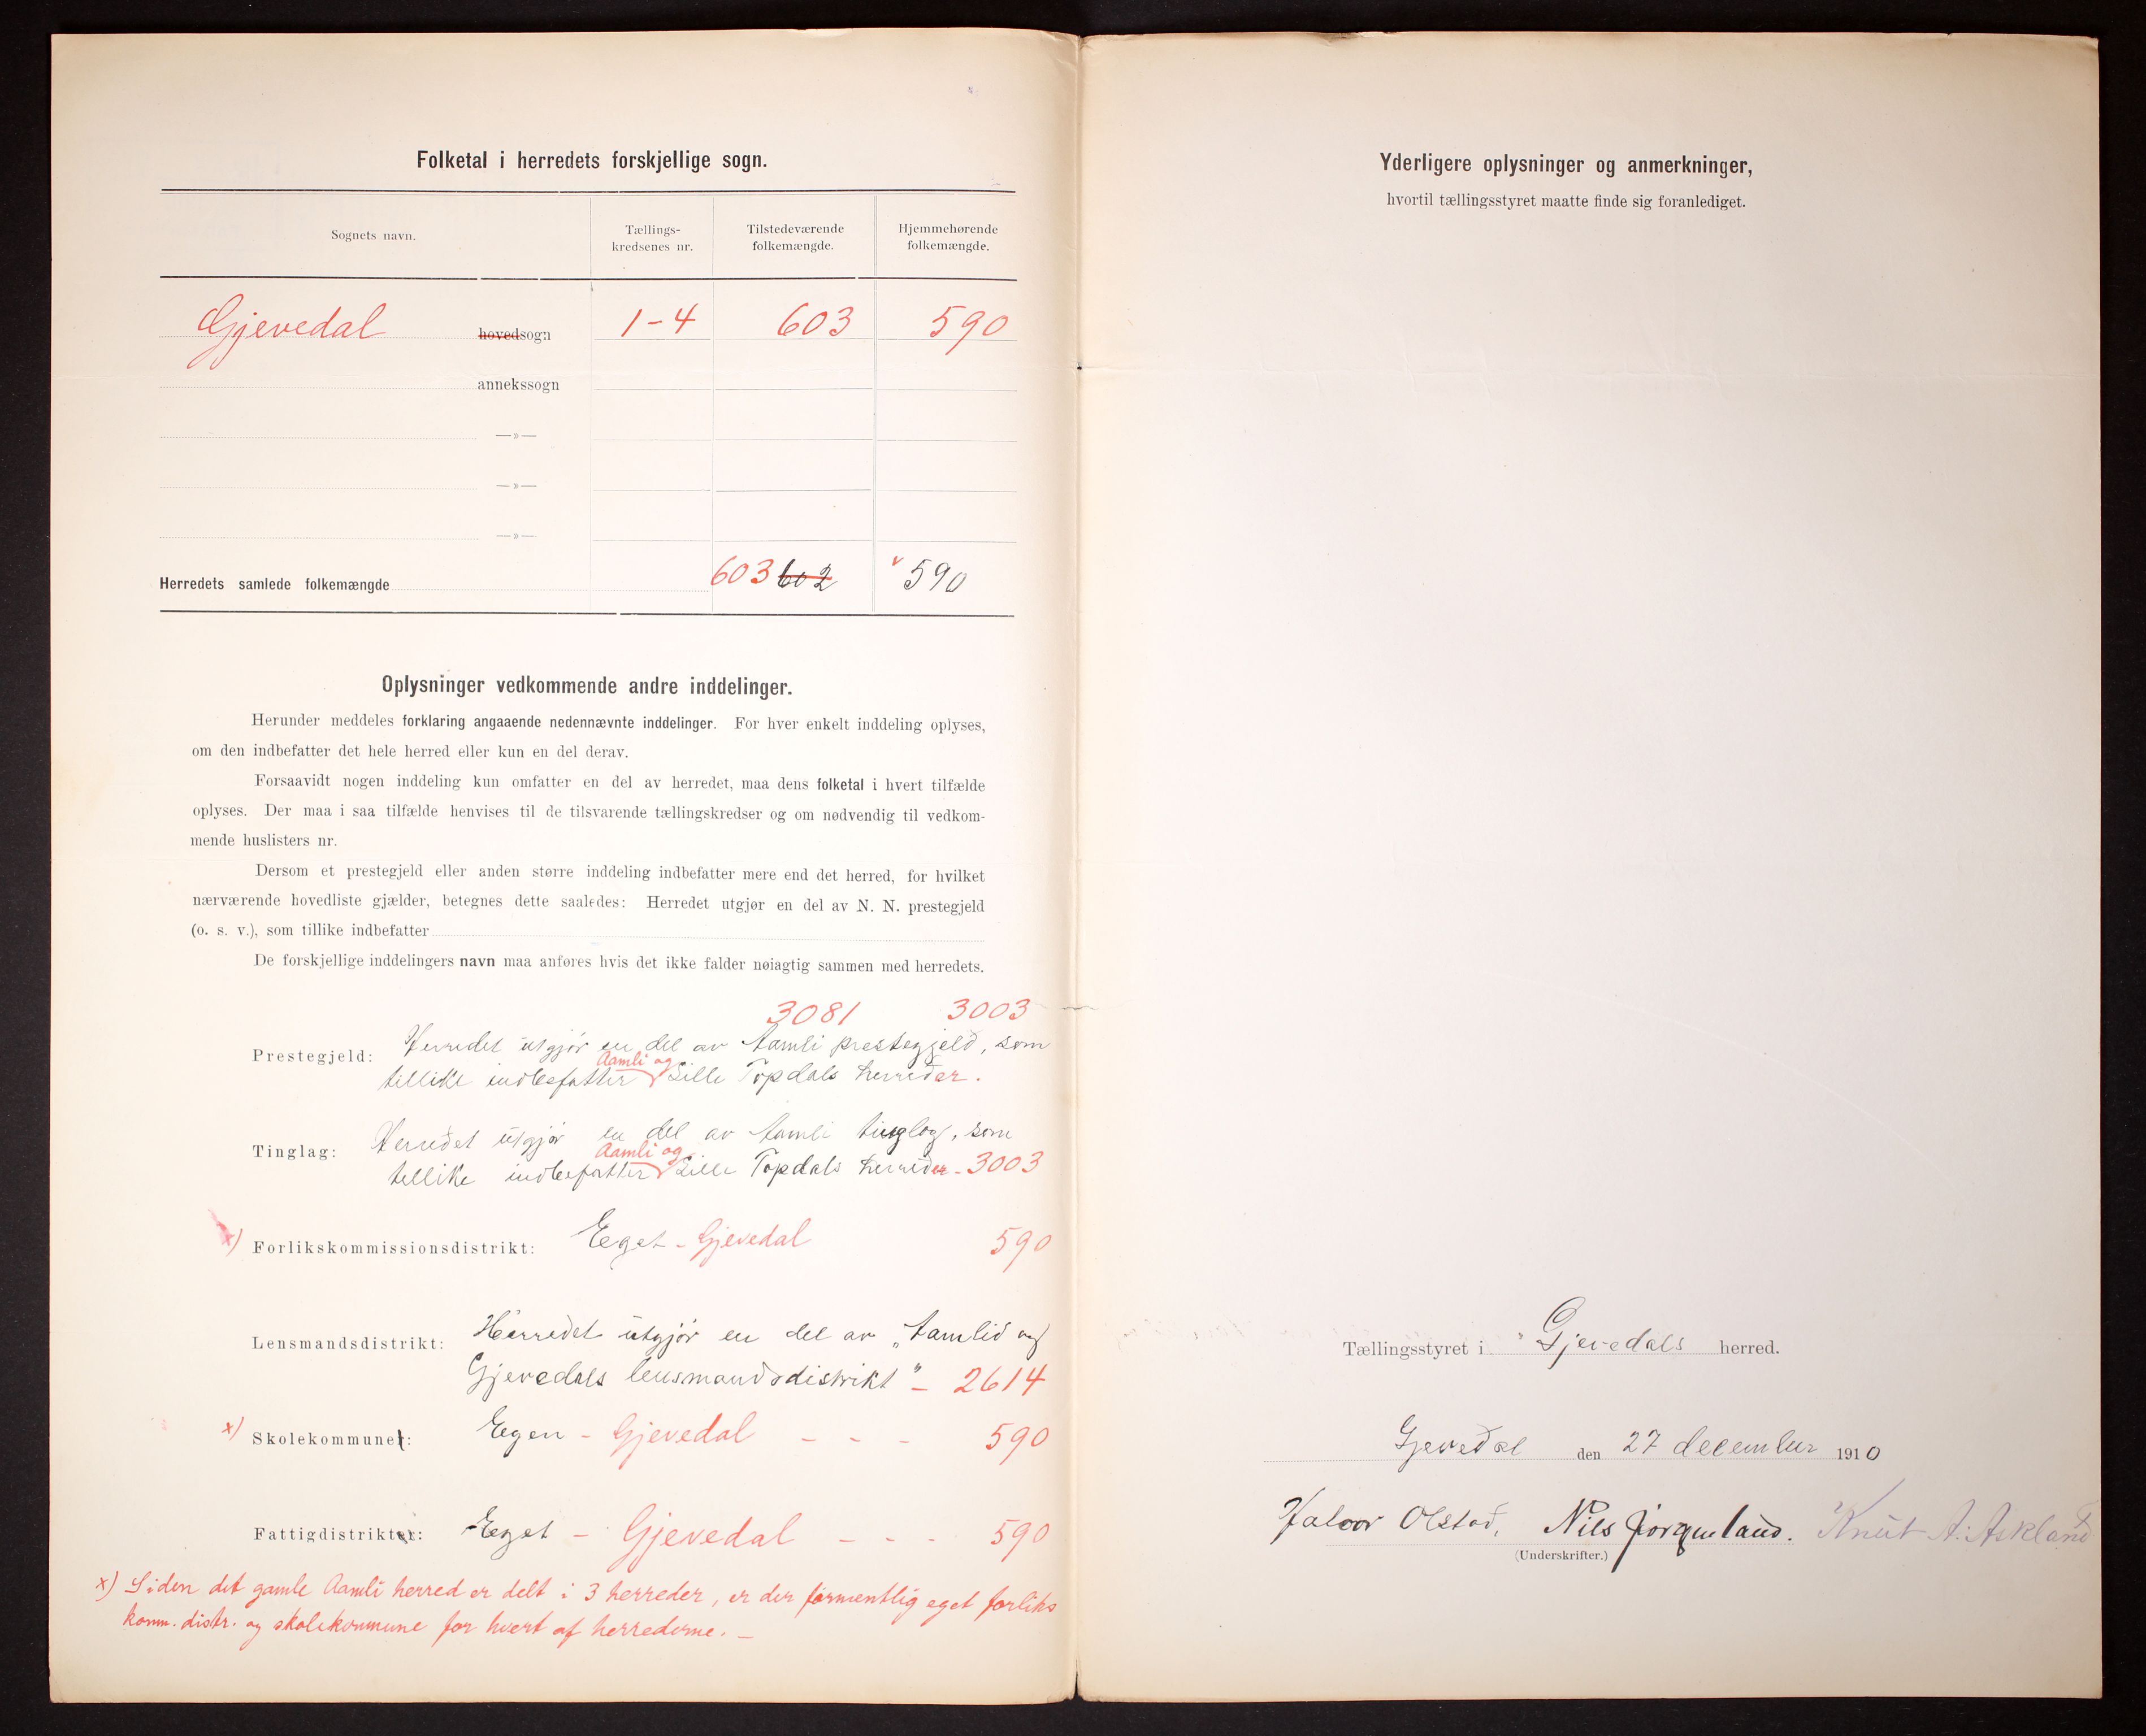 Folketal i herredets forskjellige sogn.
Sognets navn.
Tællings-
kredsenes nr.
Tilstedeværende
folkemængde.
Hjemmehørende
folkemængde.
Gjevedal hovedsogn 1-4 603 590
annekssogn
—»—
—»—
—»—
Herredets samlede folkemængde 603 602 590
Oplysninger vedkommende andre inddelinger.
Herunder meddeles forklaring angaaende nedennævnte inddelinger. For hver enkelt inddeling oplyses,
om den indbefatter det hele herred eller kun en del derav.
Forsaavidt nogen inddeling kun omfatter en del av herredet, maa dens folketal i hvert tilfælde
oplyses. Der maa i saa tilfælde henvises til de tilsvarende tællingskredser og om nødvendig til vedkom-
mende huslisters nr.
Dersom et prestegjeld eller anden større inddeling indbefatter mere end det herred, for hvilket
nærværende hovedliste gjælder, betegnes dette saaledes: Herredet utgjør en del av N. N. prestegjeld
(o. s. v.), som tillike indbefatter
De forskjellige inddelingers navn maa anføres hvis det ikke falder nøiagtig sammen med herredets.
3081 3003
Prestegjeld: Herredet utgjør en del av Aamli prestegjeld, som
Aamli og
tillike indbefatter Lille Topdals herreder.
Tinglag: Herredet utgjør en del av Aamli tinglag, som
Aamli og
tillike indbefatter Lille Topdals herreder - 3003
x) Forlikskommissionsdistrikt: Eget - Gjevedal 590
Lensmandsdistrikt: Herredet utgjør en del av „Aamlid og
Gjevedals lensmandsdistrikt" - 2614
x) Skolekommuner: Egen - Gjevedal - - - 590
Fattigdistrikter: Eget - Gjevedal - - - 590
x) Siden det gamle Aamli herred er delt i 3 herreder, er der formentlig eget forliks
komm. distr. og skolekommune for hvert af herrederne. —
Yderligere oplysninger og anmerkninger,
hvortil tællingsstyret maatte finde sig foranlediget.
Tællingsstyret i Gjevedals herred.
Gjevedal den 27 december 1910
Halvor Olstad, Nils Jørgneland. Knut A. Askland
(Underskrifter.)